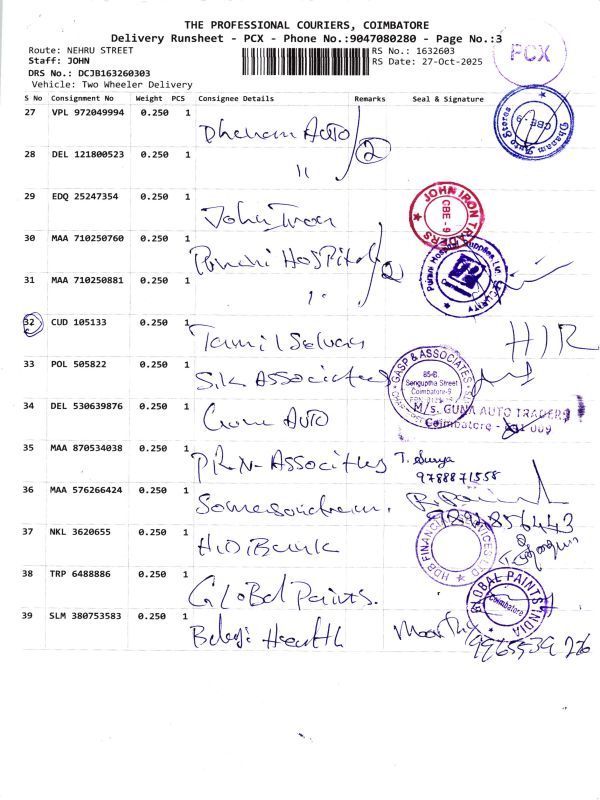 THE PROFESSIONAL COURIERS, COIMBATORE
Delivery Runsheet - PCX - Phone No.:9047080280 - Page No.:3
Route: NEHRU STREET
RS No.: 1632603
Staff: JOHN
RS Date: 27-Oct-2025
DRS No.: DCJB163260303
Vehicle: Two Wheeler Delivery
PCX
S No Consignment No Weight PCS Consignee Details Remarks Seal & Signature
27 VPL 972049994 0.250 1 Dhanam Auto 2
Dhanam Auto Stores CBE - 9
28 DEL 121800523 0.250 1 "
29 EDQ 25247354 0.250 1 John Iron
JOHN IRON TRADERS CBE - 9
30 MAA 710250760 0.250 1 Hospital 2
Hospital Supplies SECURITY
31 MAA 710250881 0.250 1 "
32 CUD 105133 0.250 1 Tamil Selvan H/R
33 POL 505822 0.250 1 S.K Associates
GASP & ASSOCIATES
85-B, Senguptha Street
Coimbatore-9
34 DEL 530639876 0.250 1 Guna AUTO
M/s. GUNA AUTO TRADERS
Coimbatore - 641 009
35 MAA 870534038 0.250 1 P.R.N-Associates T. Surya
9788871558
36 MAA 576266424 0.250 1
37 NKL 3620655 0.250 1 H.D.Bank
HDB FINANCIAL SERVICES LTD
38 TRP 6488886 0.250 1 Global Paints.
GLOBAL PAINTS INDIA Coimbatore
39 SLM 380753583 0.250 1 Balaji Health